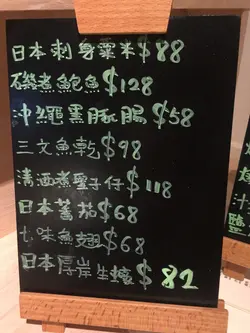 日本刺身粟米$88
磯煮鮑魚$128
沖繩黑豚腸$58
三文魚乾$98
清酒煮蟶子仔$118
日本蕃茄$68
七味魚翅$68
日本厚岸生蠔$82